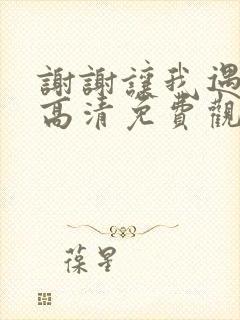 謝謝讓我遇
高清免費觀
葆星